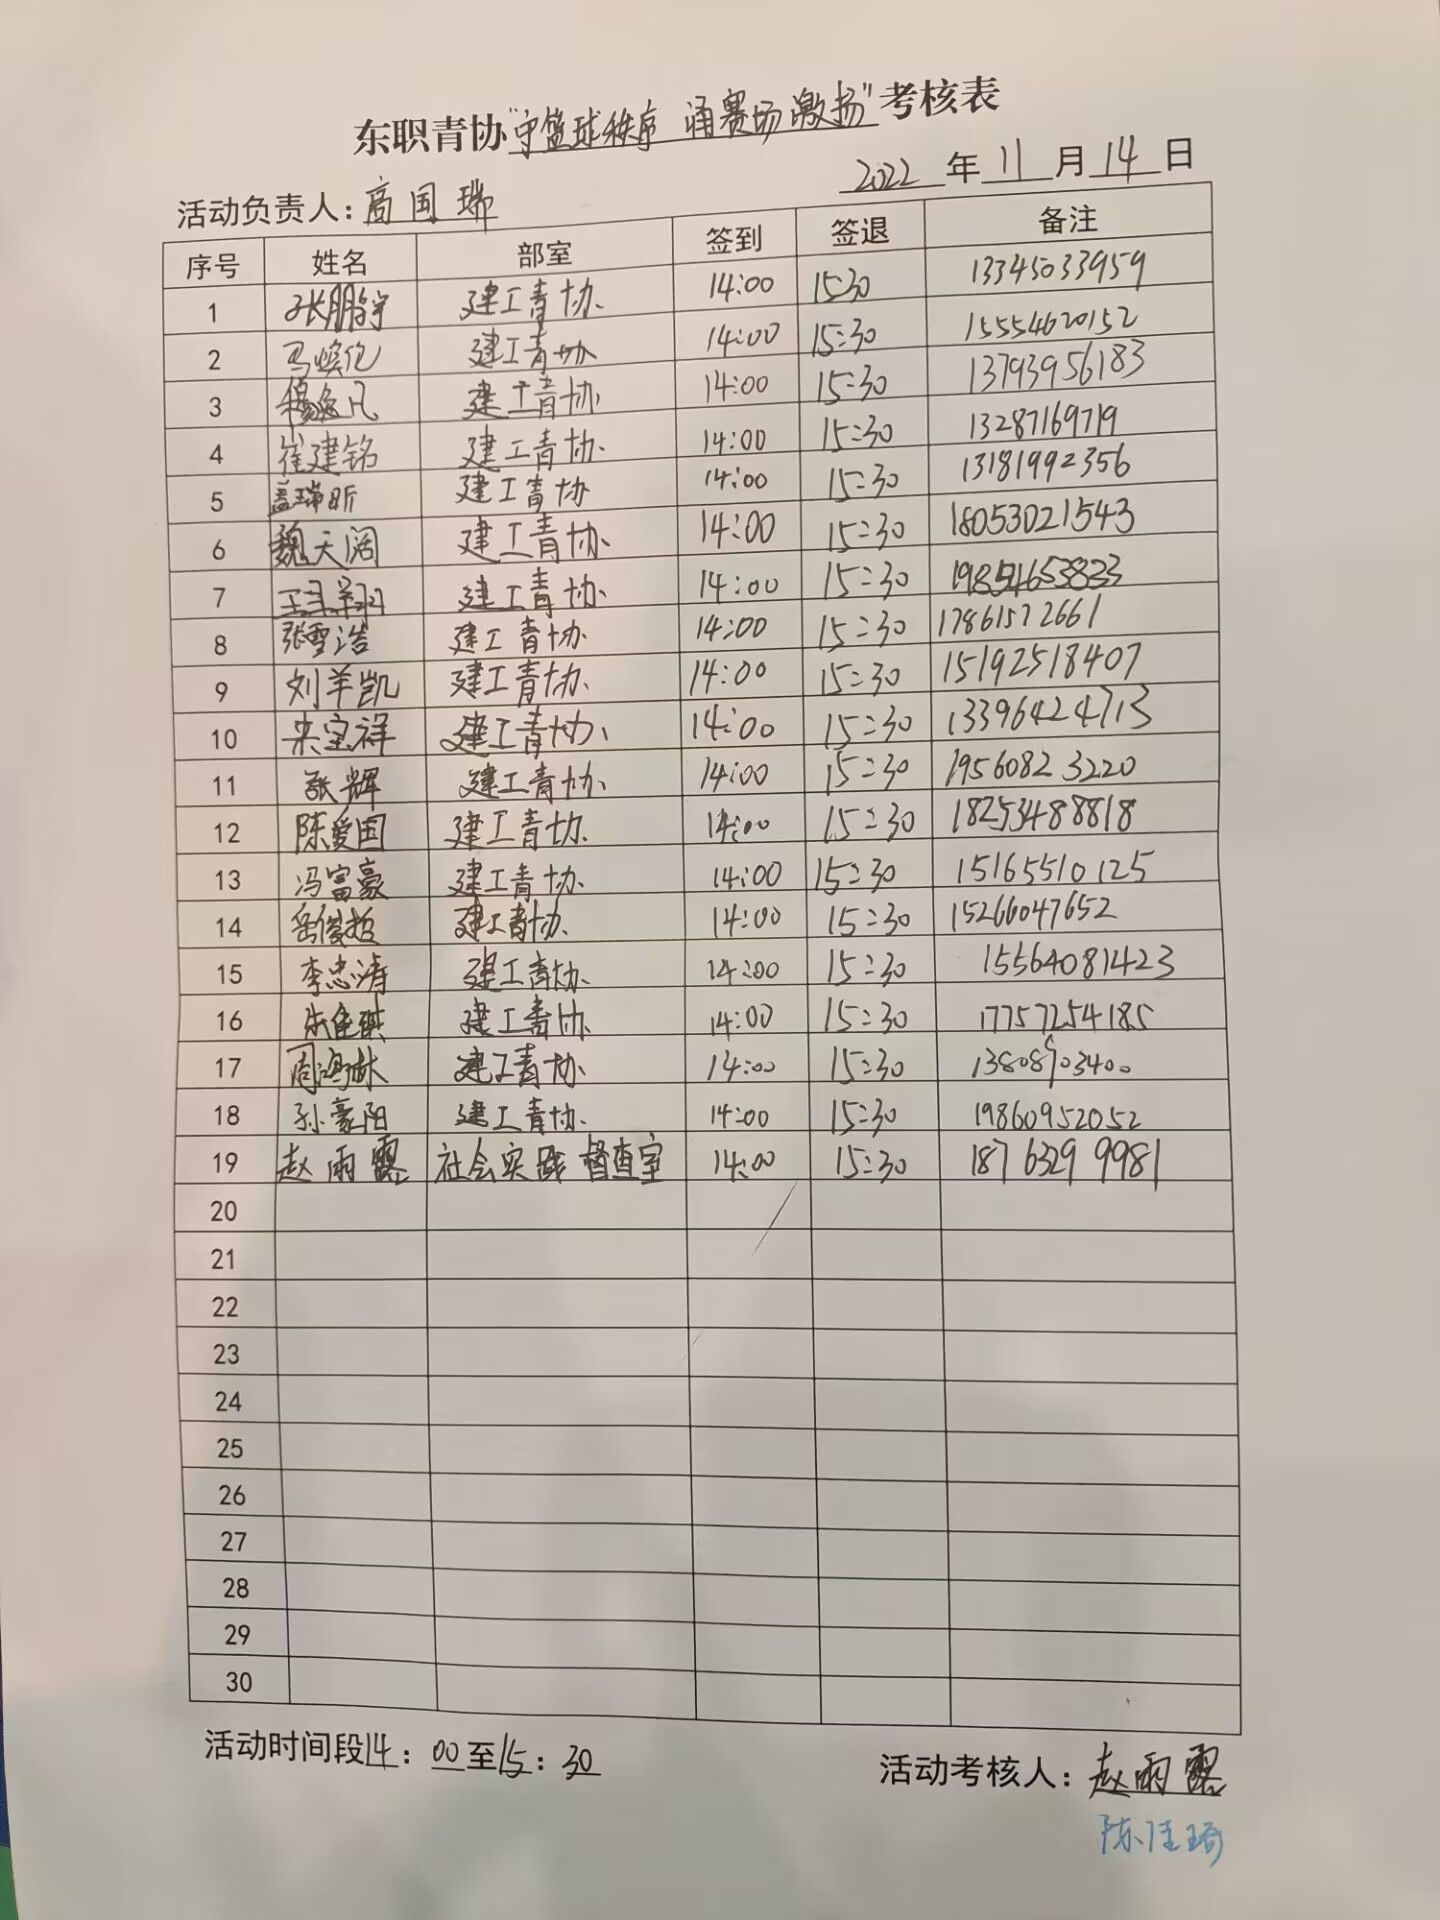 东职青协“守篮球秩序 涌赛场激扬”考核表
2022 年 11 月 14 日
活动负责人：商国瑞
序号 姓名 部室 签到 签退 备注
1 张鹏宇 建工青协 14:00 15:30 13345033959
2 马焕伦 建工青协 14:00 15:30 15554620152
3 建工青协 14:00 15:30 13793956183
4 崔建铭 建工青协 14:00 15:30 13287169719
5 盖瑞昕 建工青协 14:00 15:30 13181992356
6 魏天阔 建工青协 14:00 15:30 18053021543
7 建工青协 14:00 15:30 19854653833
8 张雪浩 建工青协 14:00 15:30 17861572661
9 刘羊凯 建工青协 14:00 15:30 15192518407
10 宋宝祥 建工青协 14:00 15:30 13396424713
11 张辉 建工青协 14:00 15:30 19560823220
12 陈爱国 建工青协 14:00 15:30 18253488818
13 冯富豪 建工青协 14:00 15:30 15165510125
14 岳俊哲 建工青协 14:00 15:30 15266047652
15 李忠涛 建工青协 14:00 15:30 15564081423
16 朱佳琪 建工青协 14:00 15:30 17757254185
17 周鸿林 建工青协 14:00 15:30 13808903400
18 孙豪阳 建工青协 14:00 15:30 19860952052
19 赵雨露 社会实践督查室 14:00 15:30 18763299981
20
21
22
23
24
25
26
27
28
29
30
活动时间段14：00至15：30
活动考核人：赵雨露
陈佳琦